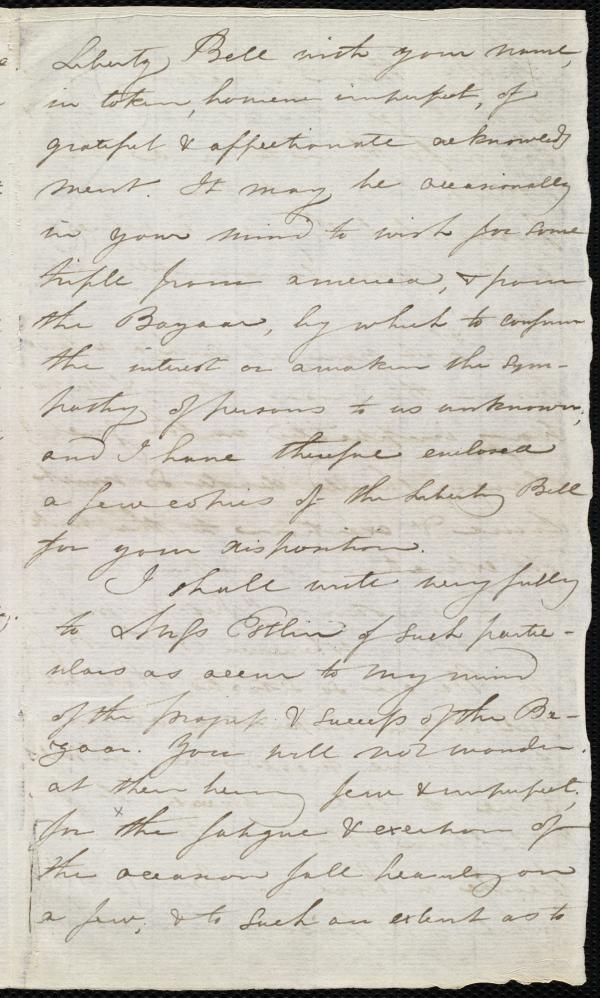 Liberty Bell with your name,
in token, however imperfect, of
grateful & affectionate acknowledg
ment. It may be occasionally
in your mind to wish for some
trifle from america, & from
the Bazaar, by which to confirm
the interest or awaken the sym-
pathy of persons to us unknown,
and I have therefore enclosed
a few copies of the Liberty Bell
for your disposition.
I shall write very fully
to Miss Estlin of such partic-
ulars as occur to my mind
of the progress & success of the Ba-
zaar. You will not wonder
at their being few & imperfect,
for the fatigue & exertion of
the occasion fall heavily on
a few, & to such an extent as to